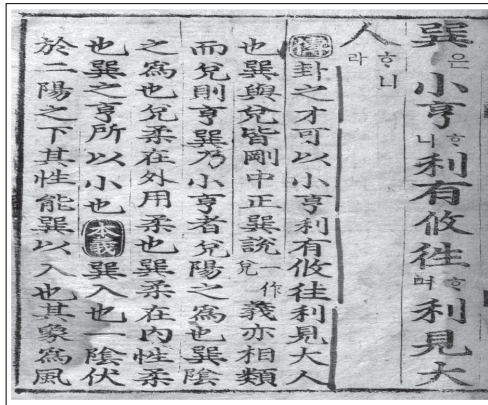 巽은小亨ᄒᆞ니利有攸徃ᄒᆞ며利見大
人ᄒᆞ니라
傳卦之才可以小亨利有攸徃利見大人
也巽與兌皆剛中正巽說一作兌義亦相類
而兌則亨巽乃小亨者兌陽之爲也巽陰
之爲也兌柔在外用柔也巽柔在內性柔
也巽之亨所以小也本義巽入也一陰伏
於二陽之下其性能巽以入也其象爲風